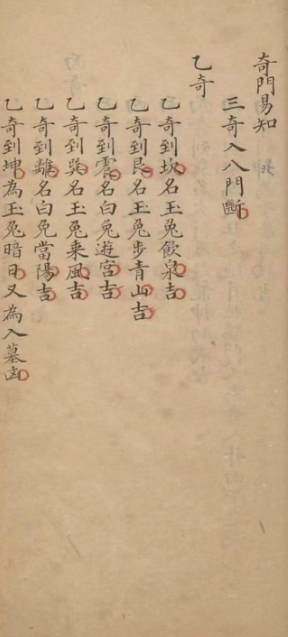 奇門易知
三奇入八門斷
乙奇
乙奇到坎名玉兔飲泉吉
乙奇到艮名玉兔步青山吉
乙奇到震名白兔遊宮吉
乙奇到巽名玉兔乘風吉
乙奇到離名白兔當陽吉
乙奇到坤為玉兔暗目又為入墓凶